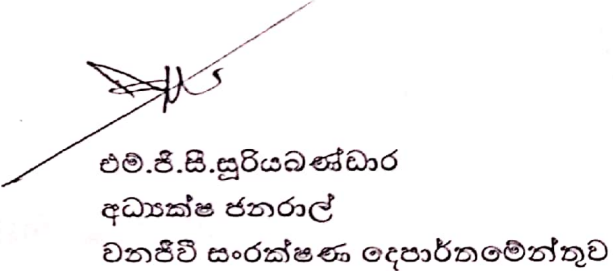 එම්.ජී.සී.සූරියබණ්ඩාර
අධ්‍යක්ෂ ජනරාල්
වනජීවී සංරක්ෂණ දෙපාර්තමේන්තුව